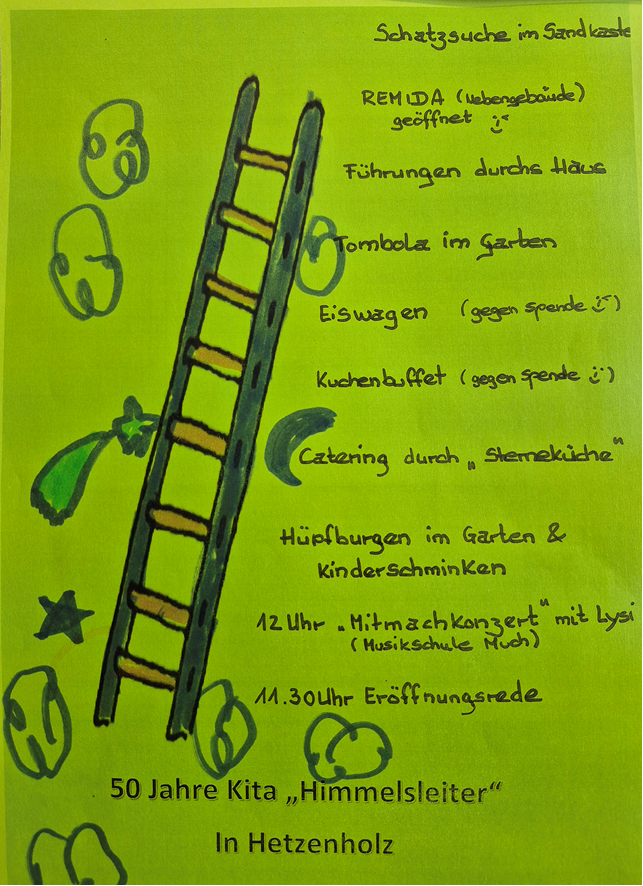 Schatzsuche im Sandkaste
REMIDA (Nebengebäude)
geöffnet
Führungen durchs Haus
Tombola im Garten
Eiswagen (gegen Spende)
Kuchenbuffet (gegen Spende)
Catering durch „Sterneküche"
Hüpfburgen im Garten &
Kinderschminken
12 Uhr „Mitmachkonzert" mit Lysi
(Musikschule Much)
11.30 Uhr Eröffnungsrede
50 Jahre Kita „Himmelsleiter“
In Hetzenholz